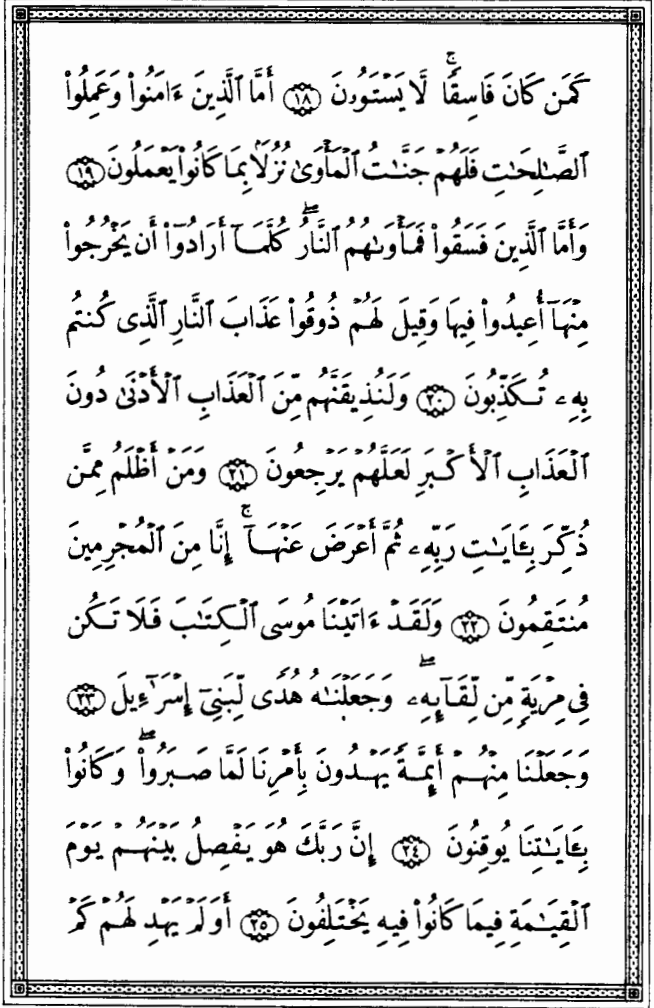 كَمَن كَانَ فَاسِقًا ۚ لَّا يَسْتَوُۥنَ ١٨ أَمَّا ٱلَّذِينَ ءَامَنُوا۟ وَعَمِلُوا۟
ٱلصَّـٰلِحَـٰتِ فَلَهُمْ جَنَّـٰتُ ٱلْمَأْوَىٰ نُزُلًۢا بِمَا كَانُوا۟ يَعْمَلُونَ ١٩
وَأَمَّا ٱلَّذِينَ فَسَقُوا۟ فَمَأْوَىٰهُمُ ٱلنَّارُ ۖ كُلَّمَآ أَرَادُوٓا۟ أَن يَخْرُجُوا۟
مِنْهَآ أُعِيدُوا۟ فِيهَا وَقِيلَ لَهُمْ ذُوقُوا۟ عَذَابَ ٱلنَّارِ ٱلَّذِى كُنتُم
بِهِۦ تُكَذِّبُونَ ٢٠ وَلَنُذِيقَنَّهُم مِّنَ ٱلْعَذَابِ ٱلْأَدْنَىٰ دُونَ
ٱلْعَذَابِ ٱلْأَكْبَرِ لَعَلَّهُمْ يَرْجِعُونَ ٢١ وَمَنْ أَظْلَمُ مِمَّن
ذُكِّرَ بِـَٔايَـٰتِ رَبِّهِۦ ثُمَّ أَعْرَضَ عَنْهَآ ۚ إِنَّا مِنَ ٱلْمُجْرِمِينَ
مُنتَقِمُونَ ٢٢ وَلَقَدْ ءَاتَيْنَا مُوسَى ٱلْكِتَـٰبَ فَلَا تَكُن
فِى مِرْيَةٍ مِّن لِّقَآئِهِۦ ۖ وَجَعَلْنَـٰهُ هُدًى لِّبَنِىٓ إِسْرَٰٓءِيلَ ٢٣
وَجَعَلْنَا مِنْهُمْ أَئِمَّةً يَهْدُونَ بِأَمْرِنَا لَمَّا صَبَرُوا۟ ۖ وَكَانُوا۟
بِـَٔايَـٰتِنَا يُوقِنُونَ ٢٤ إِنَّ رَبَّكَ هُوَ يَفْصِلُ بَيْنَهُمْ يَوْمَ
ٱلْقِيَـٰمَةِ فِيمَا كَانُوا۟ فِيهِ يَخْتَلِفُونَ ٢٥ أَوَلَمْ يَهْدِ لَهُمْ كَمْ